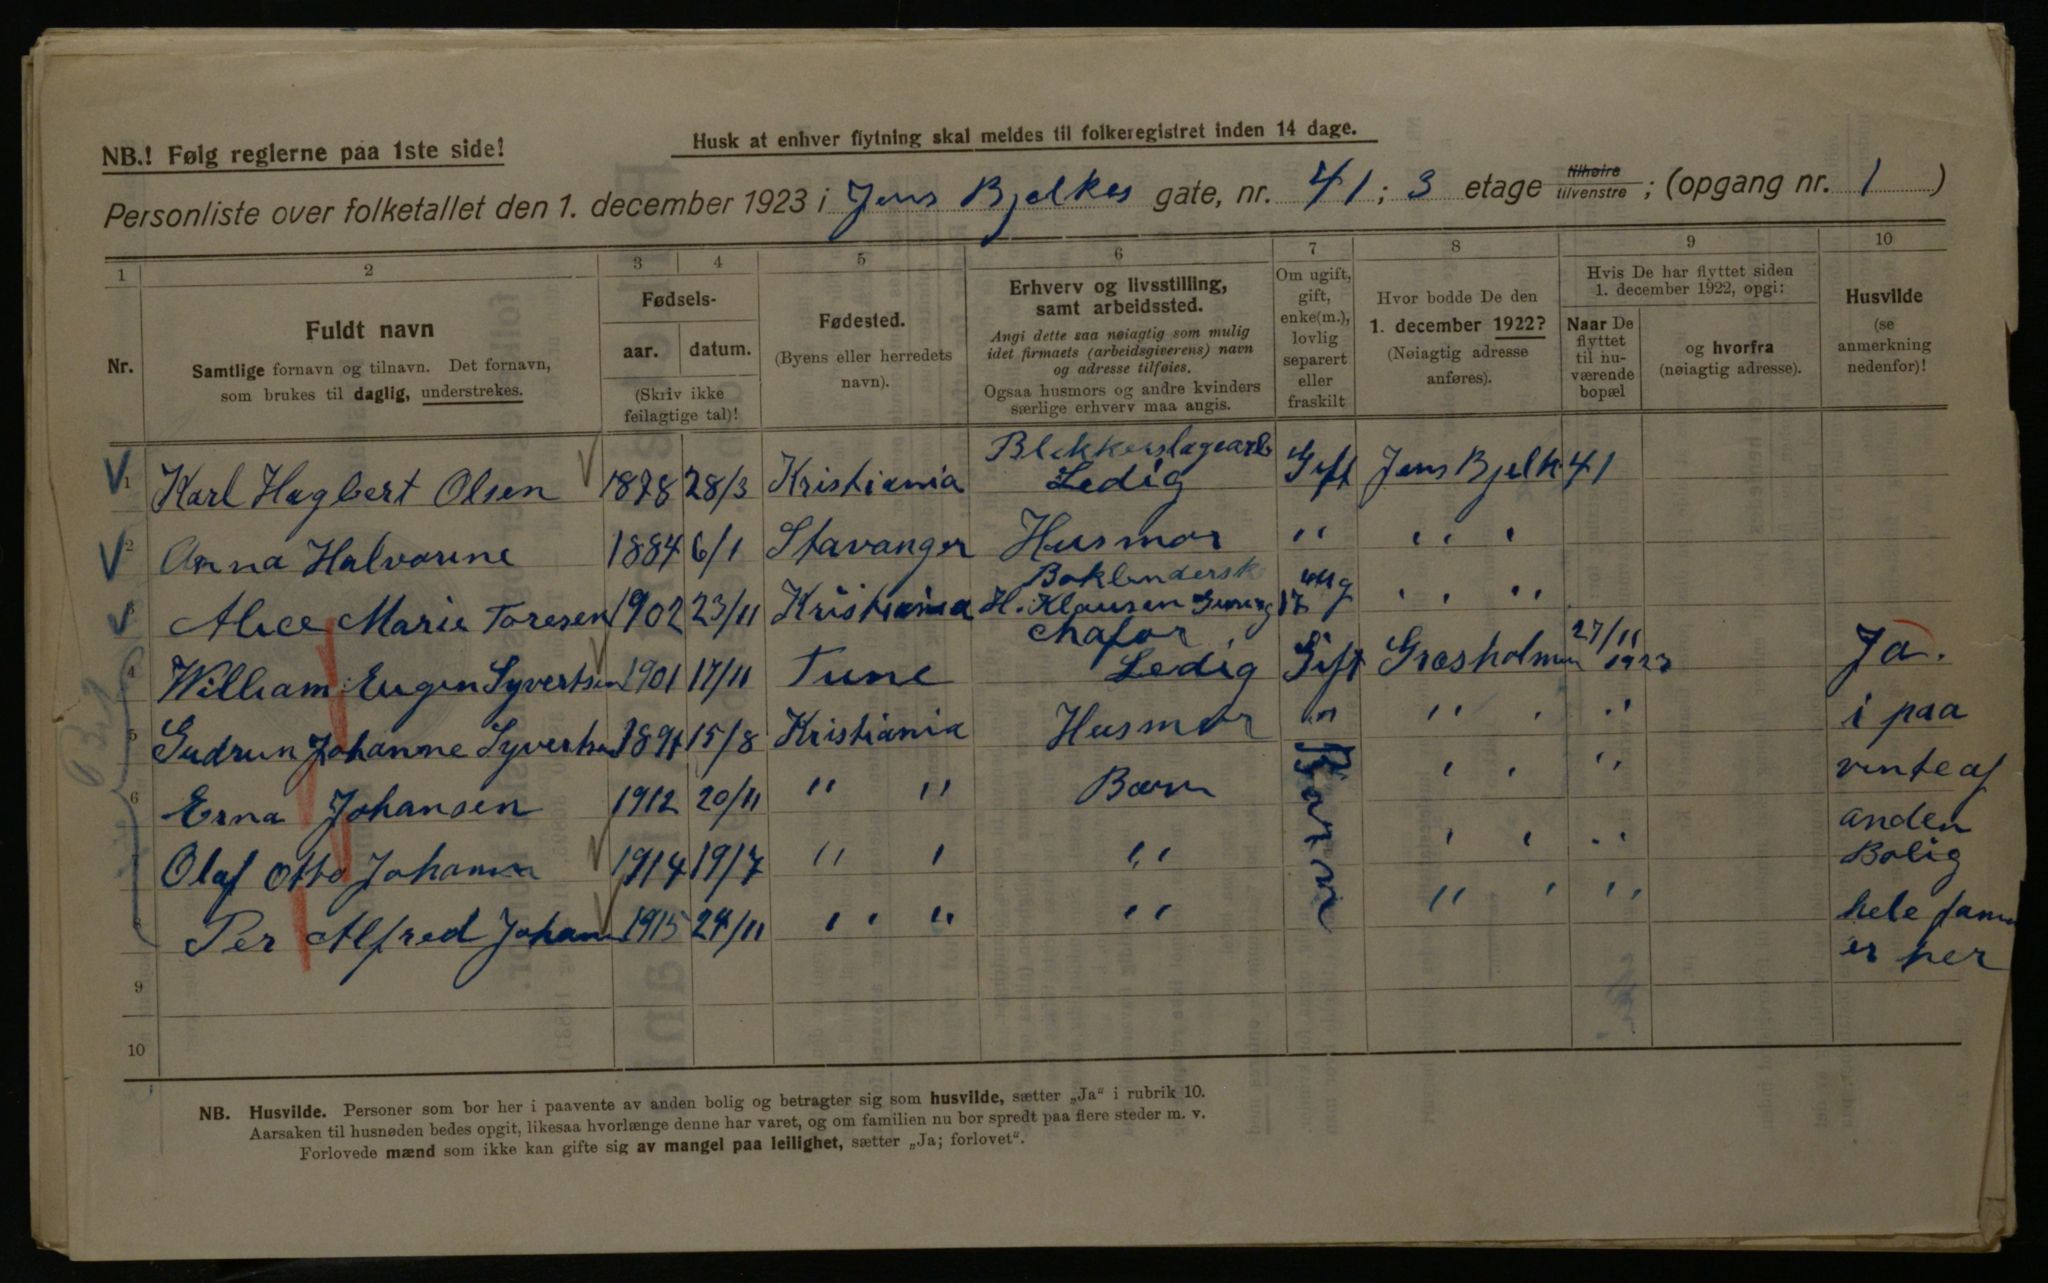 NB.! Følg reglerne paa 1ste side!
Husk at enhver flytning skal meldes til folkeregistret inden 14 dage.
Personliste over folketallet den 1. december 1923 i Jens Bjelkes gate, nr. 41; 3 etage tilhøire tilvenstre; (opgang nr. 1)
1 2 3 4 5 6 7 8 9 10
Nr.
Fuldt navn
Samtlige fornavn og tilnavn. Det fornavn,
som brukes til daglig, understrekes.
Fødsels-
aar. datum.
(Skriv ikke
feilagtige tal)!
Fødested.
(Byens eller herredets
navn).
Erhverv og livsstilling,
samt arbeidssted.
Angi dette saa nøiagtig som mulig
idet firmaets (arbeidsgiverens) navn
og adresse tilføies.
Ogsaa husmors og andre kvinders
særlige erhverv maa angis.
Om ugift,
gift,
enke(m.),
lovlig
separert
eller
fraskilt
Hvor bodde De den
1. december 1922?
(Nøiagtig adresse
anføres).
Hvis De har flyttet siden
1. december 1922, opgi:
Naar De
flyttet
til nu-
værende
bopæl
og hvorfra
(nøiagtig adresse).
Husvilde
(se
anmerkning
nedenfor)!
1 Karl Hagbert Olsen 1878 28/3 Kristiania Blekkerslagearb Ledig Gift Jens Bjelk 41
2 Anna Halvorine 1884 6/1 Stavanger Husmor " " " "
3 Alice Marie Toresen 1902 23/11 Kristiania H. Klausen 17 ug " " " "
4 William Eugen Syvertsen 1901 17/11 Tune Chafør Ledig Gift Græsholmen 27/11 1923 Ja.
5 Gudrun Johanne Syvertsen 1891 15/8 Kristiania Husmor " " " " " i paa
6 Erna Johansen 1912 20/11 " " Barn " " " " vente af
7 Olaf Otto Johansen 1914 19/7 " " " " " " " " anden Bolig
8 Per Alfred Johansen 1915 29/11 " " " " " " " " " hele fam
er her
9
10
NB. Husvilde. Personer som bor her i paavente av anden bolig og betragter sig som husvilde, sætter „Ja" i rubrik 10.
Aarsaken til husnøden bedes opgit, likesaa hvorlænge denne har varet, og om familien nu bor spredt paa flere steder m. v.
Forlovede mænd som ikke kan gifte sig av mangel paa leilighet, sætter „Ja; forlovet".